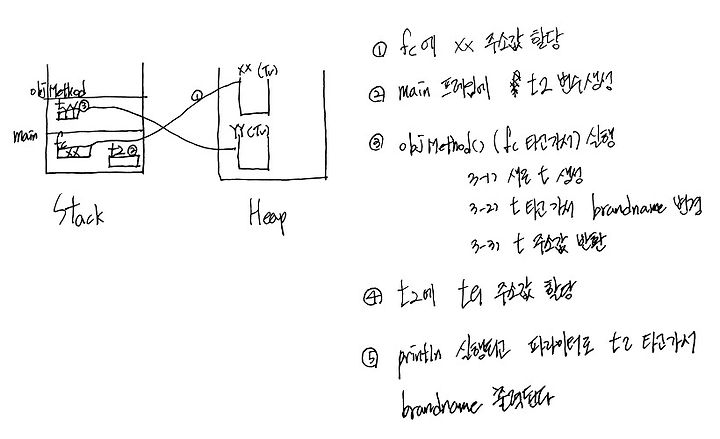 objMethod
t
yy
③
main
fc
xx
t2 ②
Stack
①
xx (Tv)
YY (Tv)
Heap
① fc에 xx 주소값 할당
② main 프레임에 t2 변수생성
③ objMethod() (fc 타고가서) 실행
3-1) 새로 t 생성
3-2) t 타고가서 brandname 변경
3-3) t 주소값 반환
④ t2에 t의 주소값 할당
⑤ println 실행되고 파라미터로 t2 타고가서
brandname 출력된다